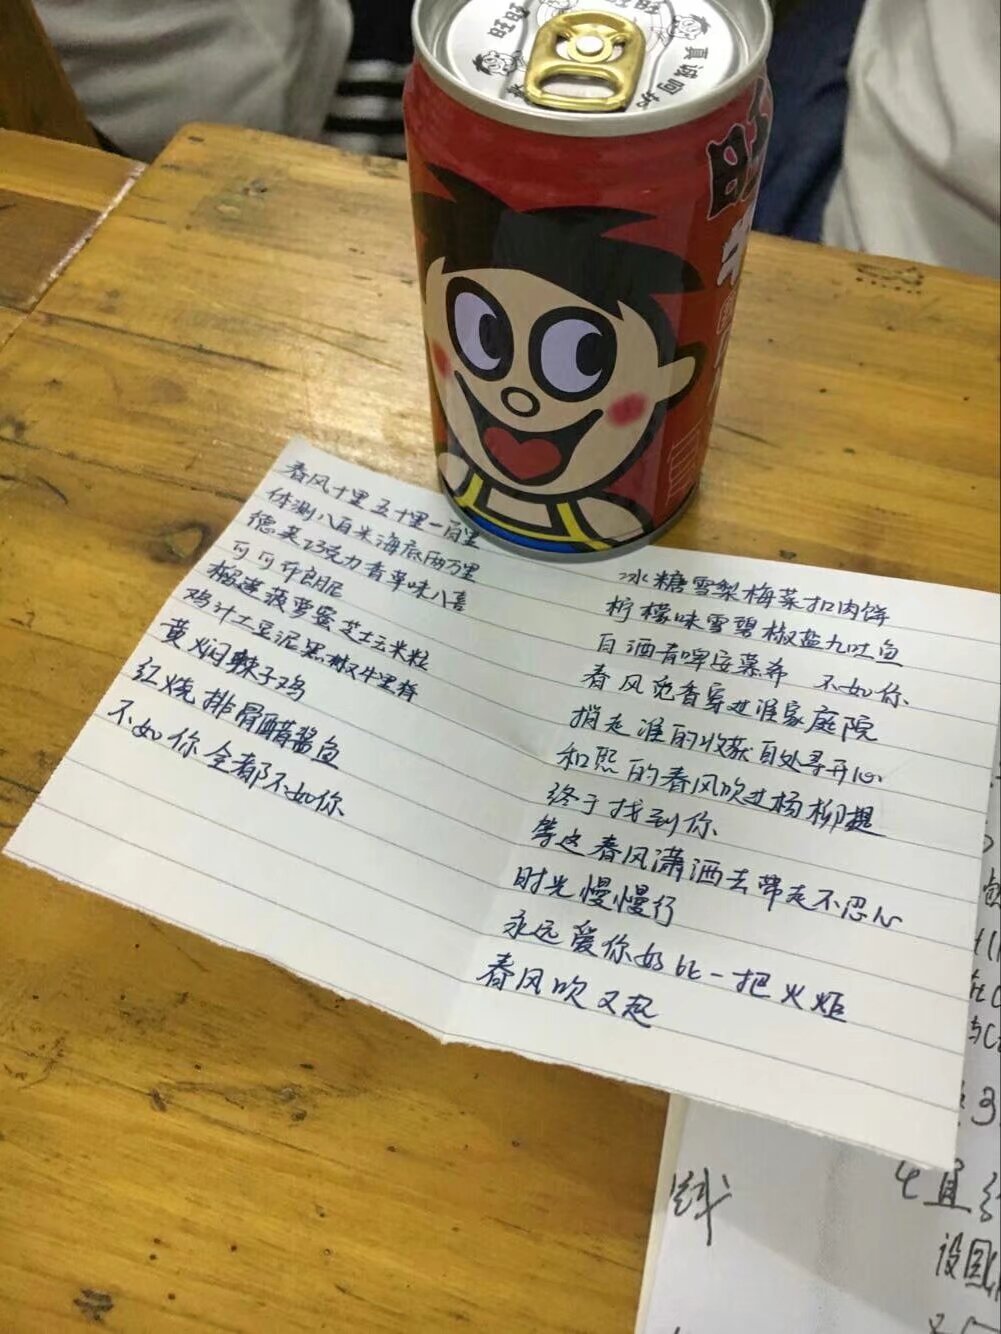 旺旺
旺旺
真诚回报
旺
牛
春风十里五十里一百里
体测八百米海底两万里
德芙巧克力香草味八喜
可可布朗尼
榴莲菠萝蜜芝士玉米粒
鸡汁土豆泥黑椒牛里脊
黄焖辣子鸡
红烧排骨醋酱鱼
不如你全都不如你
冰糖雪梨梅菜扣肉饼
柠檬味雪碧椒盐九吐鱼
白酒青啤
不如你
春风
香穿过谁家庭院
捎走谁的收获自处寻开心
和熙的春风吹过杨柳堤
终于找到你
等这春风潇洒去带走不忍心
时光慢慢行
永远爱你好比一把火炬
春风吹又起
线
设圆